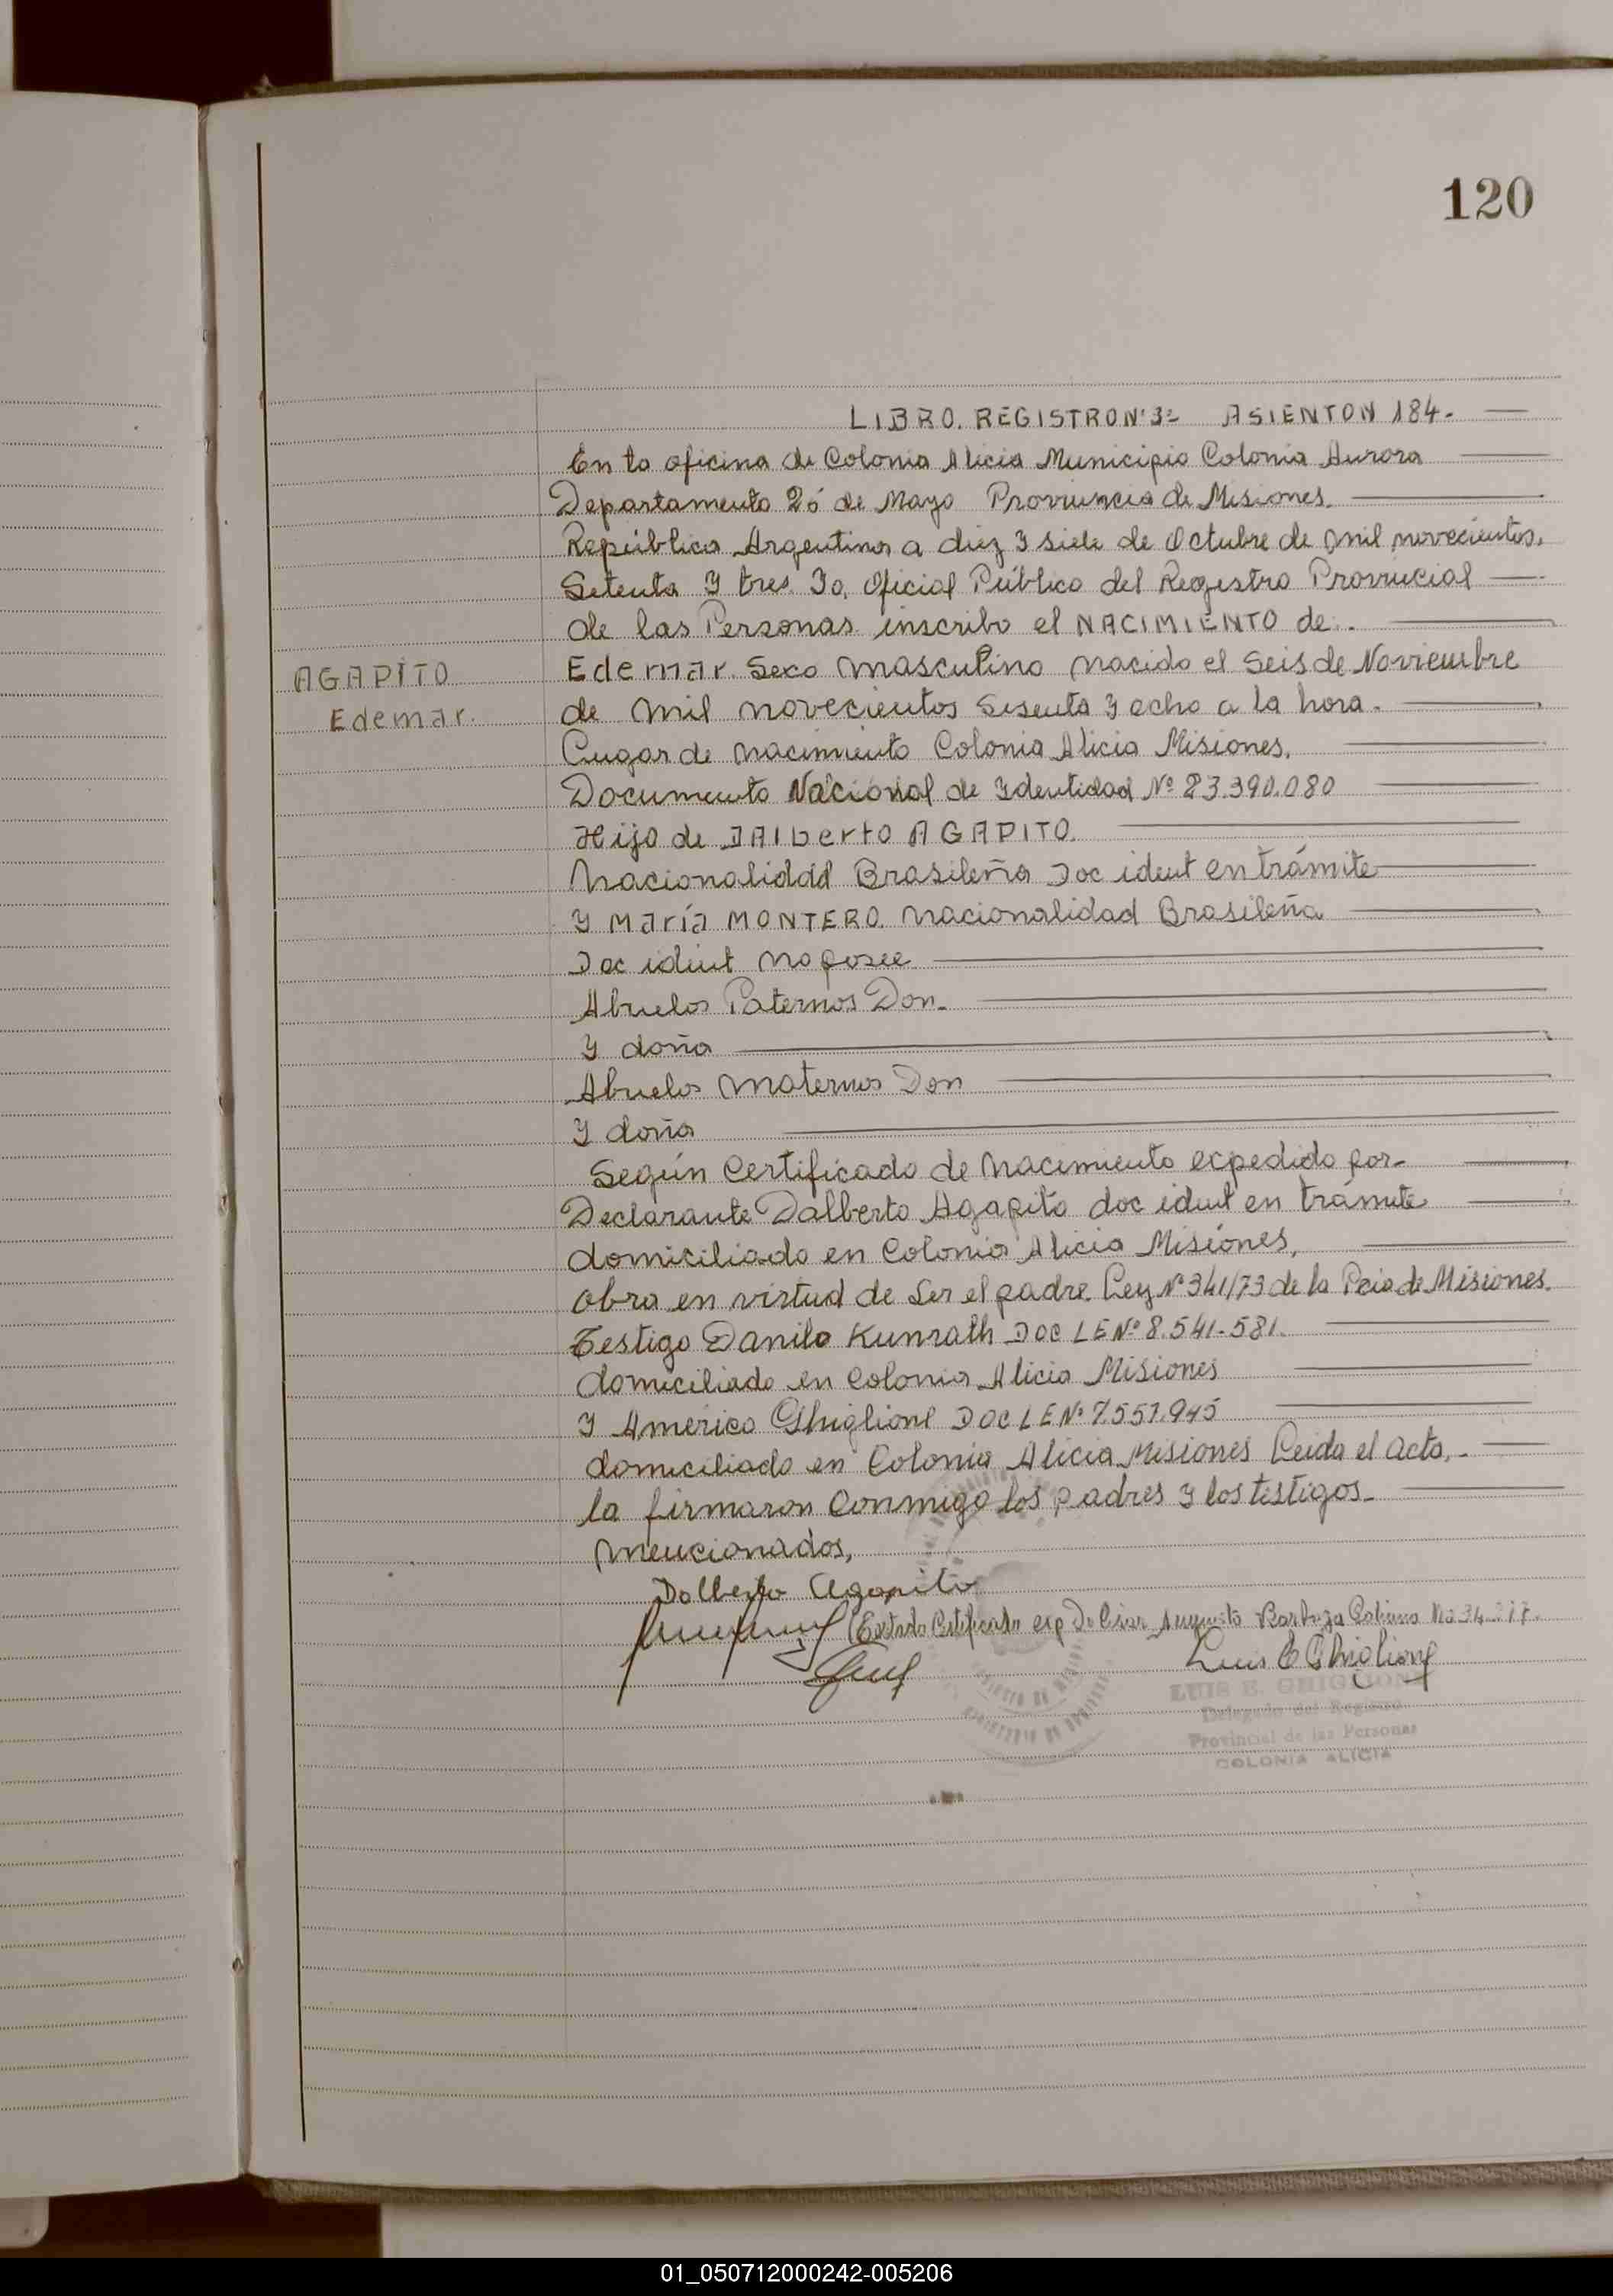 120
LIBRO. REGISTRO Nº 3= ASIENTO N 184.
En la oficina de Colonia Alicia Municipio Colonia Aurora
Departamento 25 de Mayo Provincia de Misiones.
República Argentina a diez y siete de Octubre de mil novecientos.
Setenta y tres. Yo, Oficial Público del Registro Provincial
de las Personas inscribo el NACIMIENTO de.
AGAPITO
Edemar.
Edemar. Sexo Masculino nacido el Seis de Noviembre
de mil novecientos Sesenta y ocho a la hora.
Lugar de nacimiento Colonia Alicia Misiones.
Documento Nacional de Ydentidad Nº 23.390.080
Hijo de DAlberto AGAPITO.
Nacionalidad Brasileña Doc ident en trámite
y María MONTERO. Nacionalidad Brasileña
Doc ident no posee
Abuelos Paternos Don.
Y doña
Abuelos Maternos Don
Y doña
Según Certificado de Nacimiento expedido por.
Declarante Dalberto Agapito doc ident en trámite
domiciliado en Colonia Alicia Misiones.
obra en virtud de Ser el padre. Ley Nº 341/73 de la Pcia de Misiones.
Testigo Danilo Kunrath Doc LE Nº 8.541.581.
domiciliado en Colonia Alicia Misiones
y Américo Ghiglione DOC LE Nº 7.557.945
domiciliado en Colonia Alicia Misiones Leida el Acta.
la firmaron Conmigo los padres y los testigos.
Mencionados,
Dalberto Agapito
Certificado exp
Luis E Ghiglione
LUIS E. GHIGLIONE
Delegado del Registro
Provincial de las Personas
COLONIA ALICIA
01_050712000242-005206